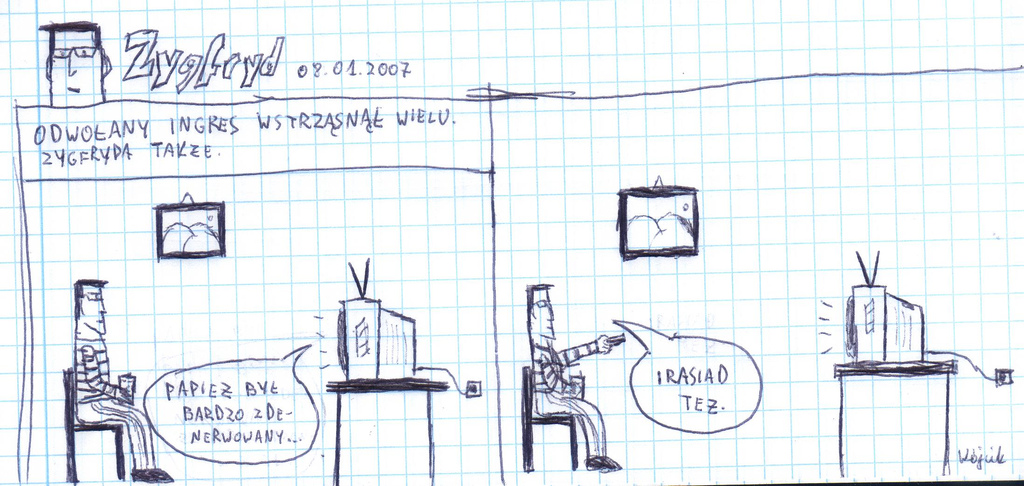 Zygfryd 08.01.2007
ODWOŁANY INGRES WSTRZĄSNĄŁ WIELU.
ZYGFRYDA TAKŻE.
PAPIEŻ BYŁ
BARDZO ZDE-
NERWOWANY...
IRASIAD
TEŻ.
Wójcik